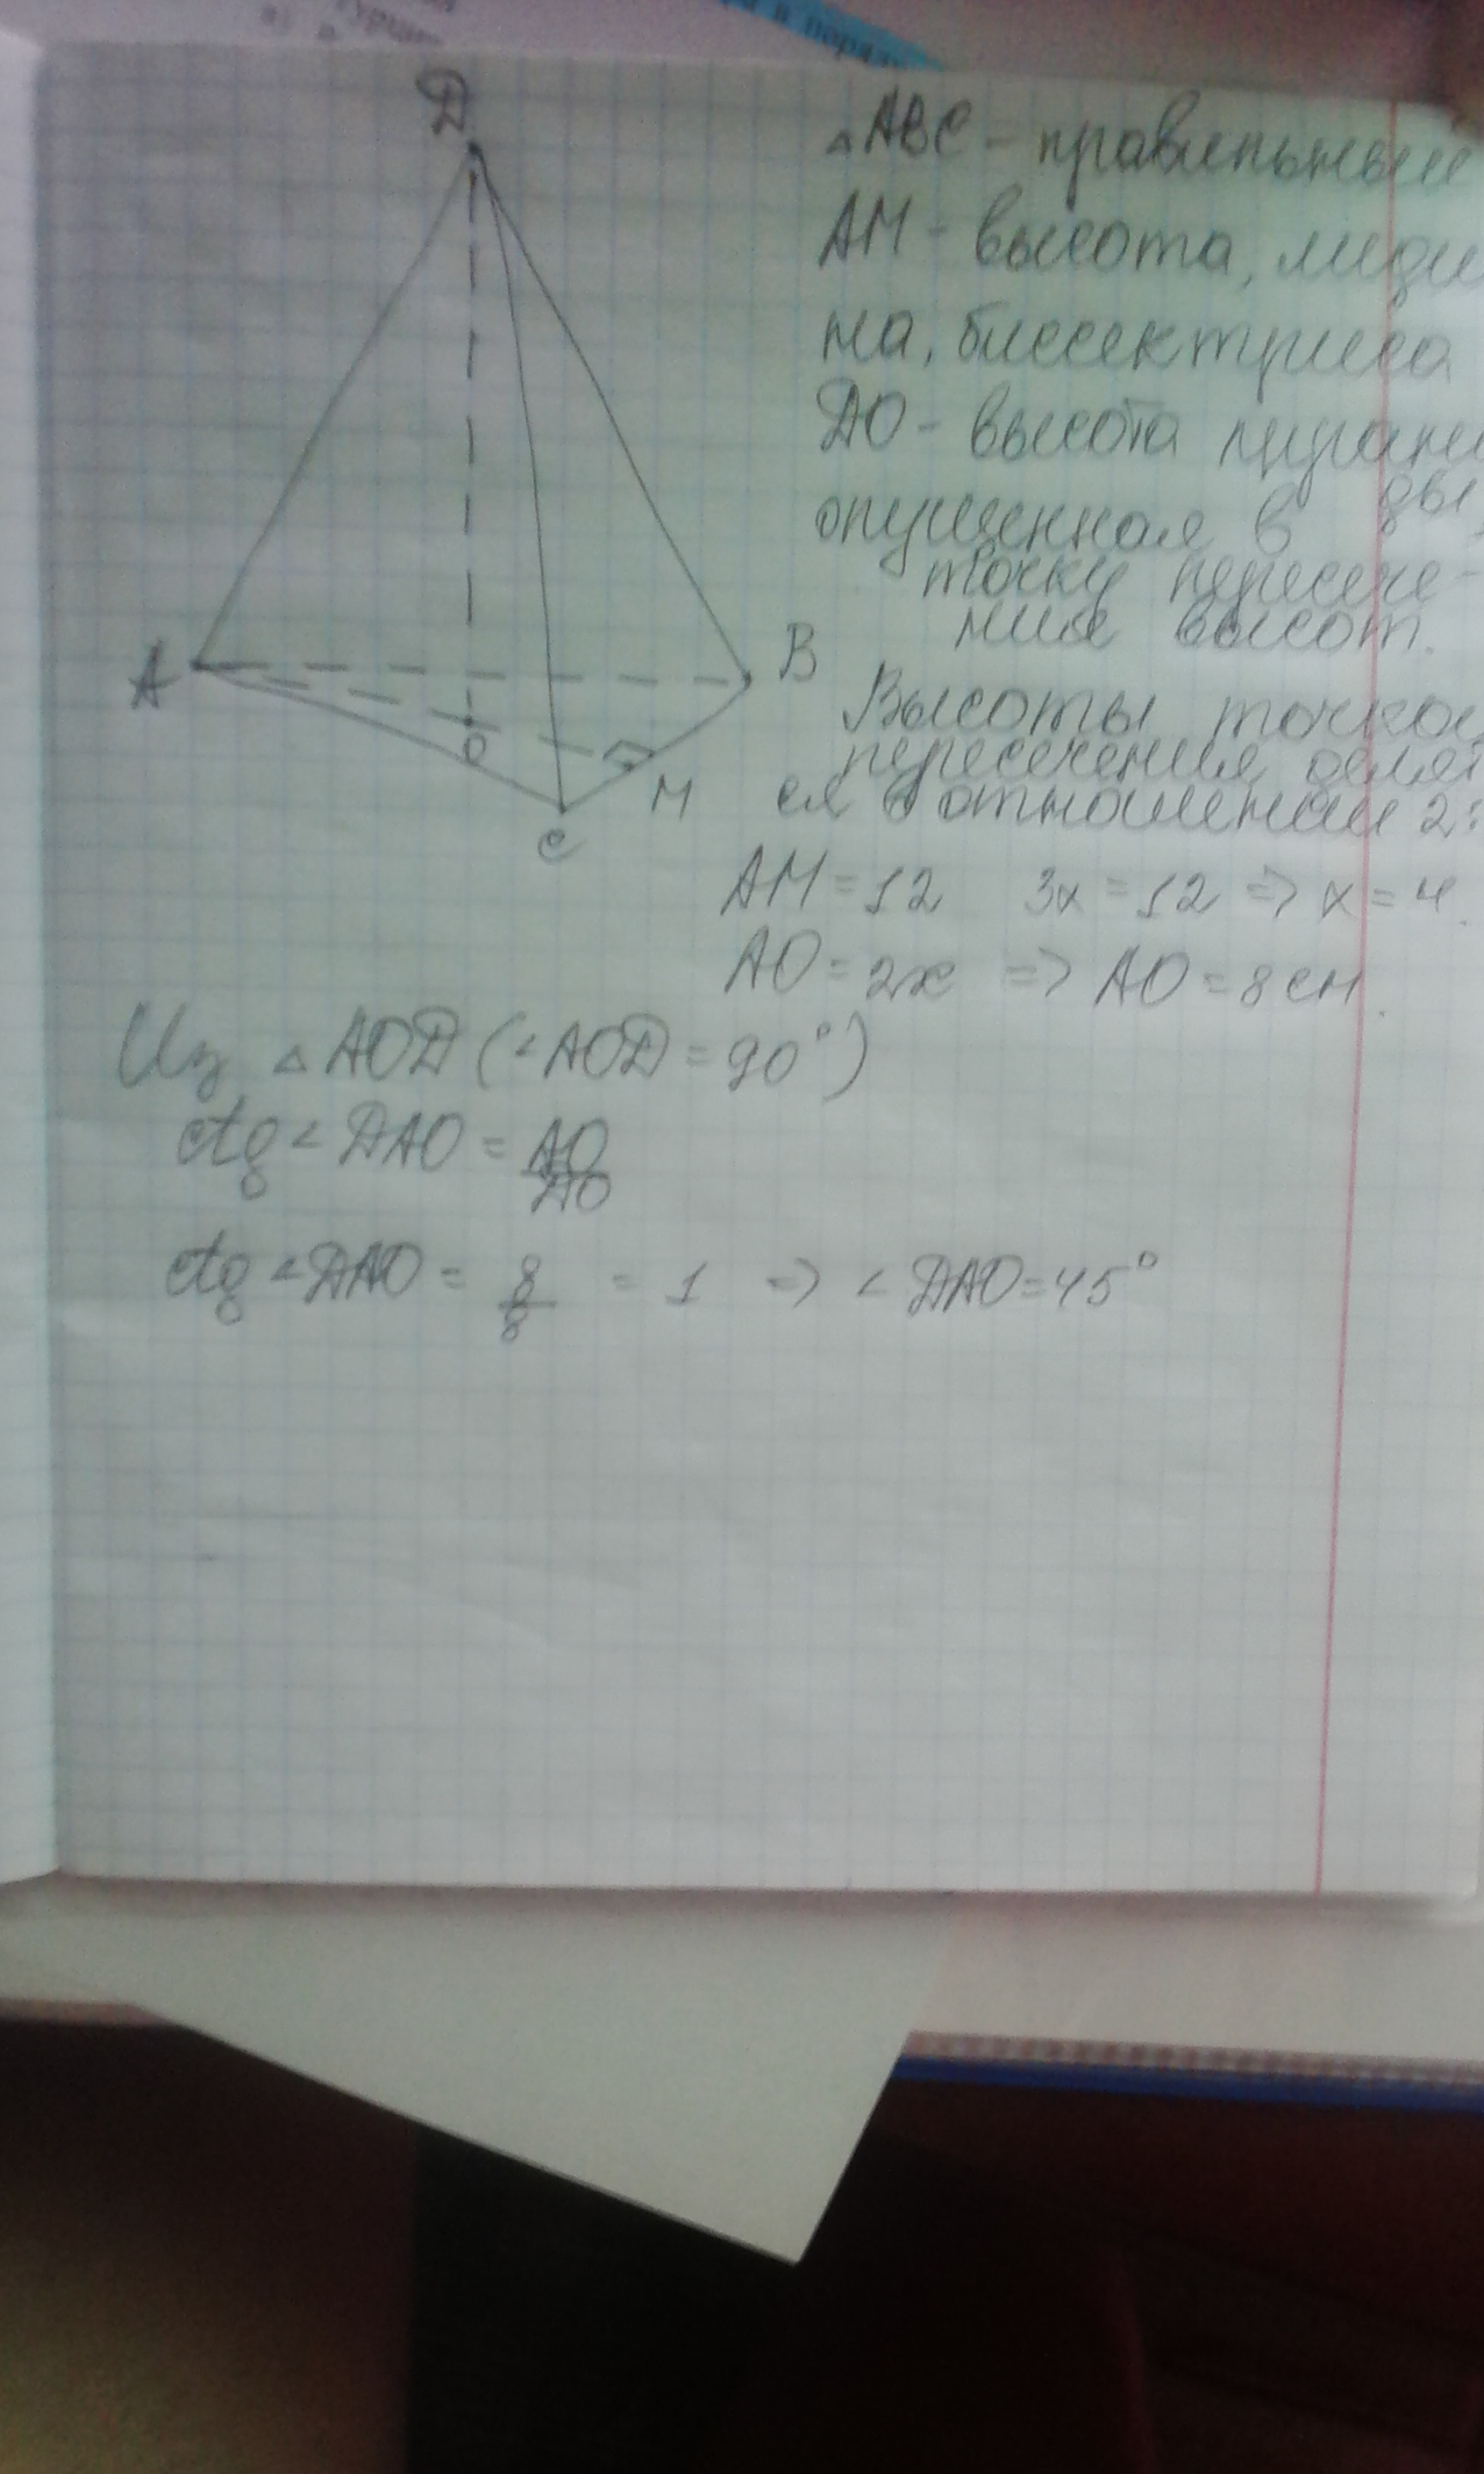 D
A
B
O
M
C
△ABC - правильный
AM - высота, меди
на, биссектриса
DO - высота пирами
ды,
опущенная в
точку пересече-
ния высот.
Высоты точкой
пересечения делят
ся в отношении 2:
AM = 12 3x = 12 => x = 4.
AO = 2x => AO = 8 см.
Из △AOD (∠AOD = 90°)
ctg ∠DAO = AO/DO
ctg ∠DAO = 8/8 = 1 => ∠DAO = 45°